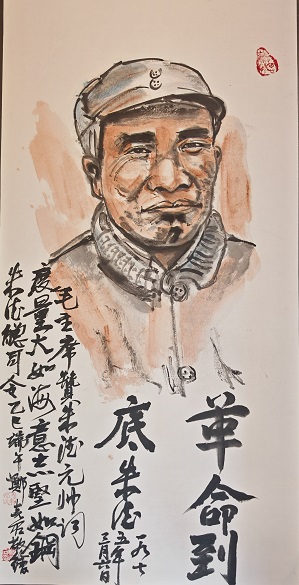 革命到
底 朱德
一九七
五年
三月六日
毛主席贊朱德元帅词
度量大如海意志堅如鋼
朱德總司令乙巳端午鄭